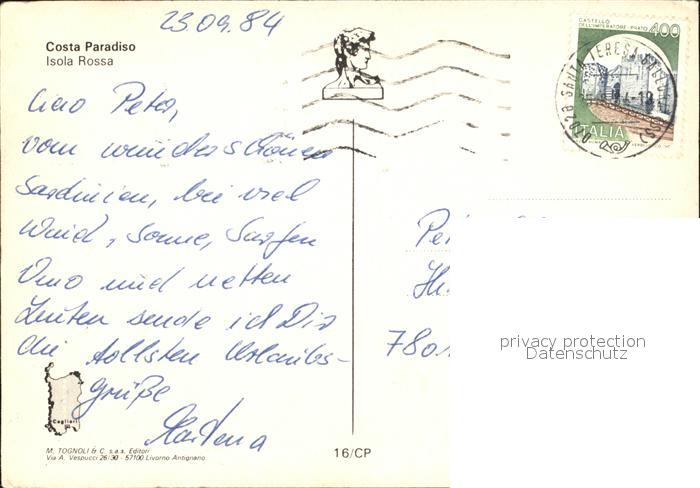 23.09.84
Costa Paradiso
Isola Rossa
Ciao Peter,
vom wunderschönen
Sardinien, bei viel
Wind, Sonne, Surfen
Vino und netten
Leuten sende ich Dir
die tollsten Urlaubs-
grüße
Martina
Cagliari
M. TOGNOLI & C. s.a.s. Editori
Via A. Vespucci 26/30 - 57100 Livorno Antignano
16/CP
CASTELLO
DELL'IMPERATORE - PRATO
400
ITALIA
07028 SANTA TERESA GALLURA (SS)
Pe
7801
privacy protection
Datenschutz